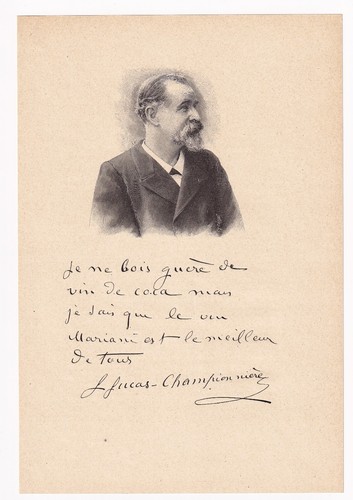 Je ne bois guère de
vin de coca mais
je sais que le vin
Mariani est le meilleur
de tous
J Lucas-Championnière